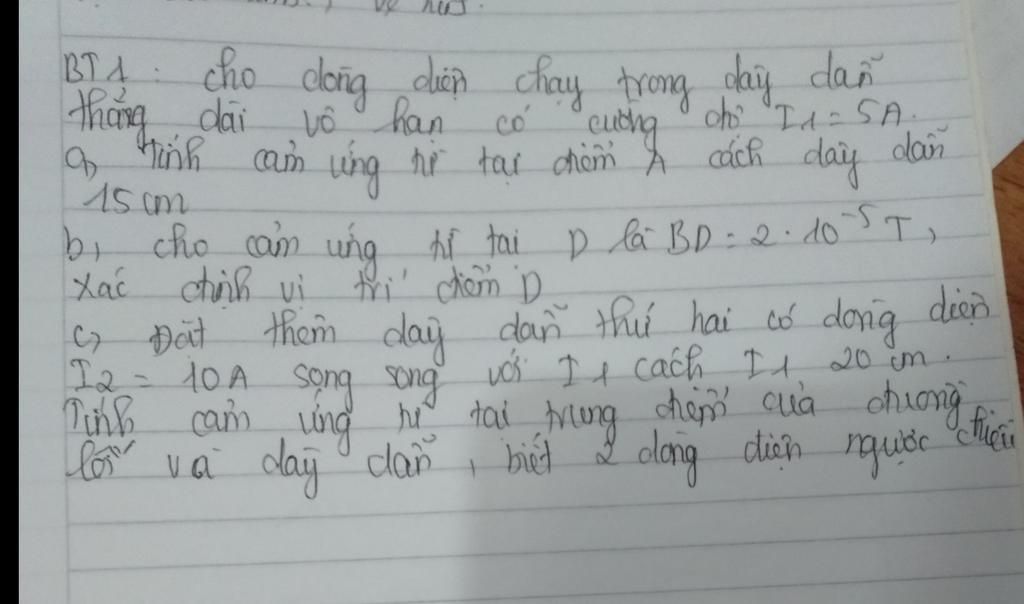 BT1: cho dòng điện chạy trong dây dẫn
thẳng dài vô hạn có cường độ I1 = 5A.
a, Tính cảm ứng từ tại điểm A cách dây dẫn
15 cm
b, cho cảm ứng từ tại D là BD = 2 . 10⁻⁵ T,
xác định vị trí điểm D
c, Đặt thêm dây dẫn thứ hai có dòng điện
I2 = 10A song song với I1 cách I1 20 cm.
Tính cảm ứng từ tại trung điểm của đường
nối và dây dẫn, biết 2 dòng điện ngược chiều